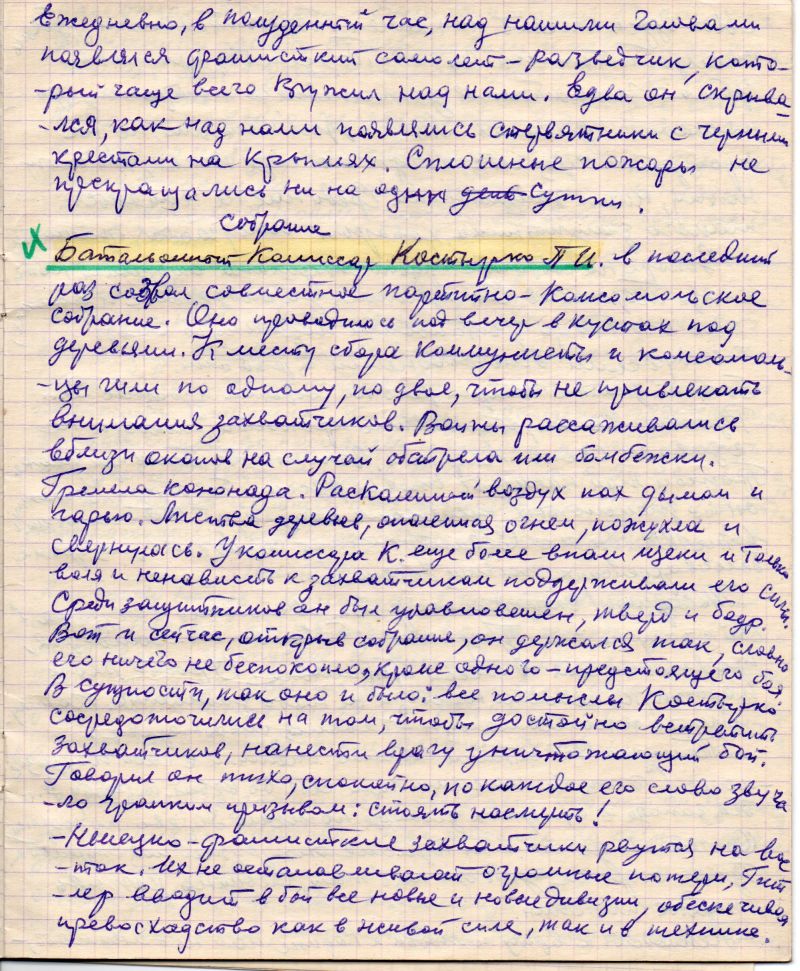 Ежедневно, в полуденный час, над нашими головами
появлялся фашисткий самолет-разведчик, кото-
-рый чаще всего кружил над нами. Едва он скрыва-
-лся, как над нами появлялись стервятники с черными
крестами на крыльях. Сплошные пожары не
прекращались ни на одни день сутки.
собрание
Батальонный Комиссар Костырко П И. в последний
раз созвал совместное партийно-комсомольское
собрание. Оно проводилось под вечер в кустах под
деревьями. К месту сбора коммунисты и комсомоль-
-цы шли по одному, по двое, чтобы не привлекать
внимания захватчиков. Воины рассаживались
вблизи окопов на случай обстрела или бомбежки.
Гремела кононада. Раскаленный воздух пах дымом и
гарью. Листва деревьев, опаленная огнем, пожухла и
свернулась. У комиссара К. еще более впали щеки и только
воля и ненависть к захватчикам поддерживали его силы.
Среди защитников он был уравновешен, тверд и бодр.
Вот и сейчас, открыв собрание, он держался так, словно
его ничего не беспокоило, кроме одного - предстоящего боя.
В сущности, так оно и было: все помыслы Костырко
сосредоточились на том, чтобы достойно встретить
захватчиков, нанести врагу уничтожающий бой.
Говорил он тихо, спокойно, но каждое его слово звуча
-ло громким призывом: стоять насмерть!
-Немецко-фашисткие захватчики рвутся на вос
-ток. Их не останавливают огромные потери, Гит
-лер вводит в бой все новые и новые дивизии, обеспечивая
превосходство как в живой силе, так и в технике.